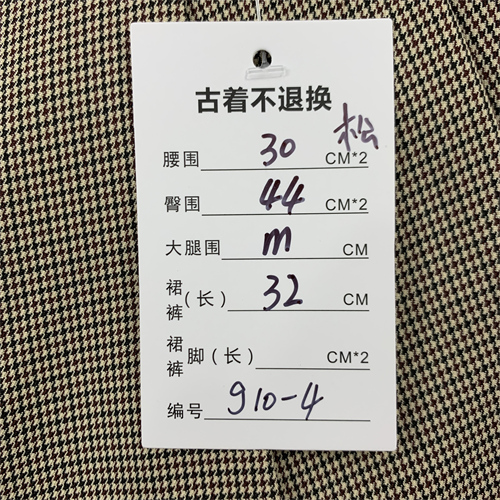 古着不退换
松
腰围 30 CM*2
臀围 44 CM*2
大腿围 m CM
裙裤(长) 32 CM
裙裤脚(长) CM*2
编号 910-4